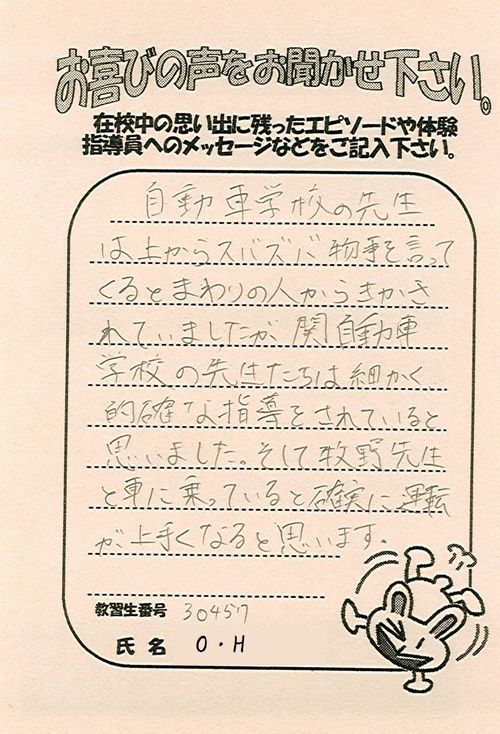 お喜びの声をお聞かせ下さい。
在校中の思い出に残ったエピソードや体験
指導員へのメッセージなどをご記入下さい。
自動車学校の先生
は上からズバズバ物事を言って
くるとまわりの人からきかさ
れていましたが関自動車
学校の先生たちは細かく
的確な指導をされていると
思いました。そして牧野先生
と車に乗っていると確実に運転
が上手くなると思います。
教習生番号 304517
氏名 O・H